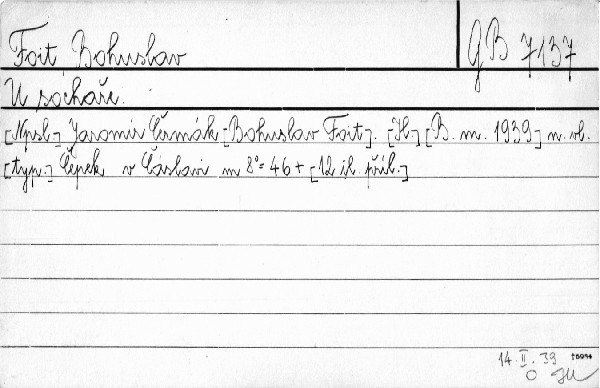 Foit, Bohuslav
GB 7137
U sochaře.
[Npsl.] Jaromír Čermák [Bohuslav Foit]. [Il.] [B. m. 1939] n. vl.
[typ.] Čepek v Čáslavi m 8°= 46 + [12 il. příl.]
14. II. 39